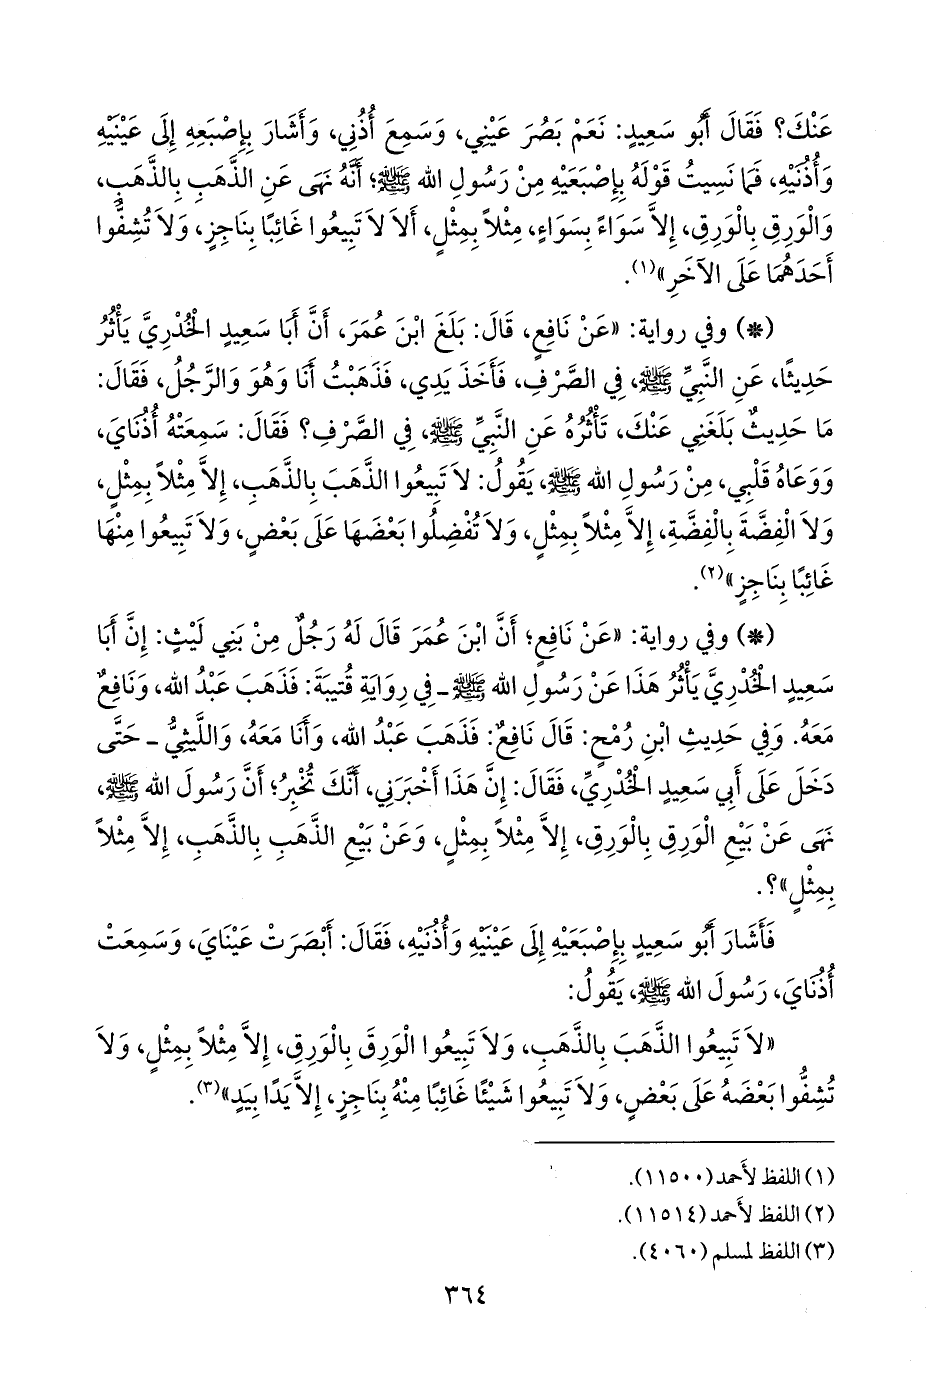 عَنْكَ؟ فَقَالَ أَبُو سَعِيدٍ: نَعَمْ بَصُرَ عَيْنِي، وَسَمِعَ أُذُنِي، وَأَشَارَ بِإِصْبَعِهِ إِلَى عَيْنَيْهِ
وَأُذُنَيْهِ، فَمَا نَسِيتُ قَوْلَهُ بِإِصْبَعَيْهِ مِنْ رَسُولِ الله ﷺ؛ أَنَّهُ نَهَى عَنِ الذَّهَبِ بِالذَّهَبِ،
وَالْوَرِقِ بِالْوَرِقِ، إِلاَّ سَوَاءً بِسَوَاءٍ، مِثْلاً بِمِثْلٍ، أَلاَ لاَ تَبِيعُوا غَائِبًا بِنَاجِزٍ، وَلاَ تُشِفُّوا
أَحَدَهُمَا عَلَى الآخَرِ»(١).
(*) وفي رواية: «عَنْ نَافِعٍ، قَالَ: بَلَغَ ابْنَ عُمَرَ، أَنَّ أَبَا سَعِيدٍ الْخُدْرِيَّ يَأْثُرُ
حَدِيثًا، عَنِ النَّبِيِّ ﷺ، فِي الصَّرْفِ، فَأَخَذَ يَدِي، فَذَهَبْتُ أَنَا وَهُوَ وَالرَّجُلُ، فَقَالَ:
مَا حَدِيثٌ بَلَغَنِي عَنْكَ، تَأْثُرُهُ عَنِ النَّبِيِّ ﷺ، فِي الصَّرْفِ؟ فَقَالَ: سَمِعَتْهُ أُذُنَايَ،
وَوَعَاهُ قَلْبِي، مِنْ رَسُولِ الله ﷺ، يَقُولُ: لاَ تَبِيعُوا الذَّهَبَ بِالذَّهَبِ، إِلاَّ مِثْلاً بِمِثْلٍ،
وَلاَ الْفِضَّةَ بِالْفِضَّةِ، إِلاَّ مِثْلاً بِمِثْلٍ، وَلاَ تُفْضِلُوا بَعْضَهَا عَلَى بَعْضٍ، وَلاَ تَبِيعُوا مِنْهَا
غَائِبًا بِنَاجِزٍ»(٢).
(*) وفي رواية: «عَنْ نَافِعٍ؛ أَنَّ ابْنَ عُمَرَ قَالَ لَهُ رَجُلٌ مِنْ بَنِي لَيْثٍ: إِنَّ أَبَا
سَعِيدٍ الْخُدْرِيَّ يَأْثُرُ هَذَا عَنْ رَسُولِ الله ﷺ ـ فِي رِوَايَةِ قُتَيْبَةَ: فَذَهَبَ عَبْدُ الله، وَنَافِعٌ
مَعَهُ. وَفِي حَدِيثِ ابْنِ رُمْحٍ: قَالَ نَافِعٌ: فَذَهَبَ عَبْدُ الله، وَأَنَا مَعَهُ، وَاللَّيْثِيُّ ـ حَتَّى
دَخَلَ عَلَى أَبِي سَعِيدٍ الْخُدْرِيِّ، فَقَالَ: إِنَّ هَذَا أَخْبَرَنِي، أَنَّكَ تُخْبِرُ؛ أَنَّ رَسُولَ الله ﷺ،
نَهَى عَنْ بَيْعِ الْوَرِقِ بِالْوَرِقِ، إِلاَّ مِثْلاً بِمِثْلٍ، وَعَنْ بَيْعِ الذَّهَبِ بِالذَّهَبِ، إِلاَّ مِثْلاً
بِمِثْلٍ»؟.
فَأَشَارَ أَبُو سَعِيدٍ بِإِصْبَعَيْهِ إِلَى عَيْنَيْهِ وَأُذُنَيْهِ، فَقَالَ: أَبْصَرَتْ عَيْنَايَ، وَسَمِعَتْ
أُذُنَايَ، رَسُولَ الله ﷺ، يَقُولُ:
«لاَ تَبِيعُوا الذَّهَبَ بِالذَّهَبِ، وَلاَ تَبِيعُوا الْوَرِقَ بِالْوَرِقِ، إِلاَّ مِثْلاً بِمِثْلٍ، وَلاَ
تُشِفُّوا بَعْضَهُ عَلَى بَعْضٍ، وَلاَ تَبِيعُوا شَيْئًا غَائِبًا مِنْهُ بِنَاجِزٍ، إِلاَّ يَدًا بِيَدٍ»(٣).
(١) اللفظ لأَحمد (١١٥٠٠).
(٢) اللفظ لأَحمد (١١٥١٤).
(٣) اللفظ لمسلم (٤٠٦٠).
٣٦٤